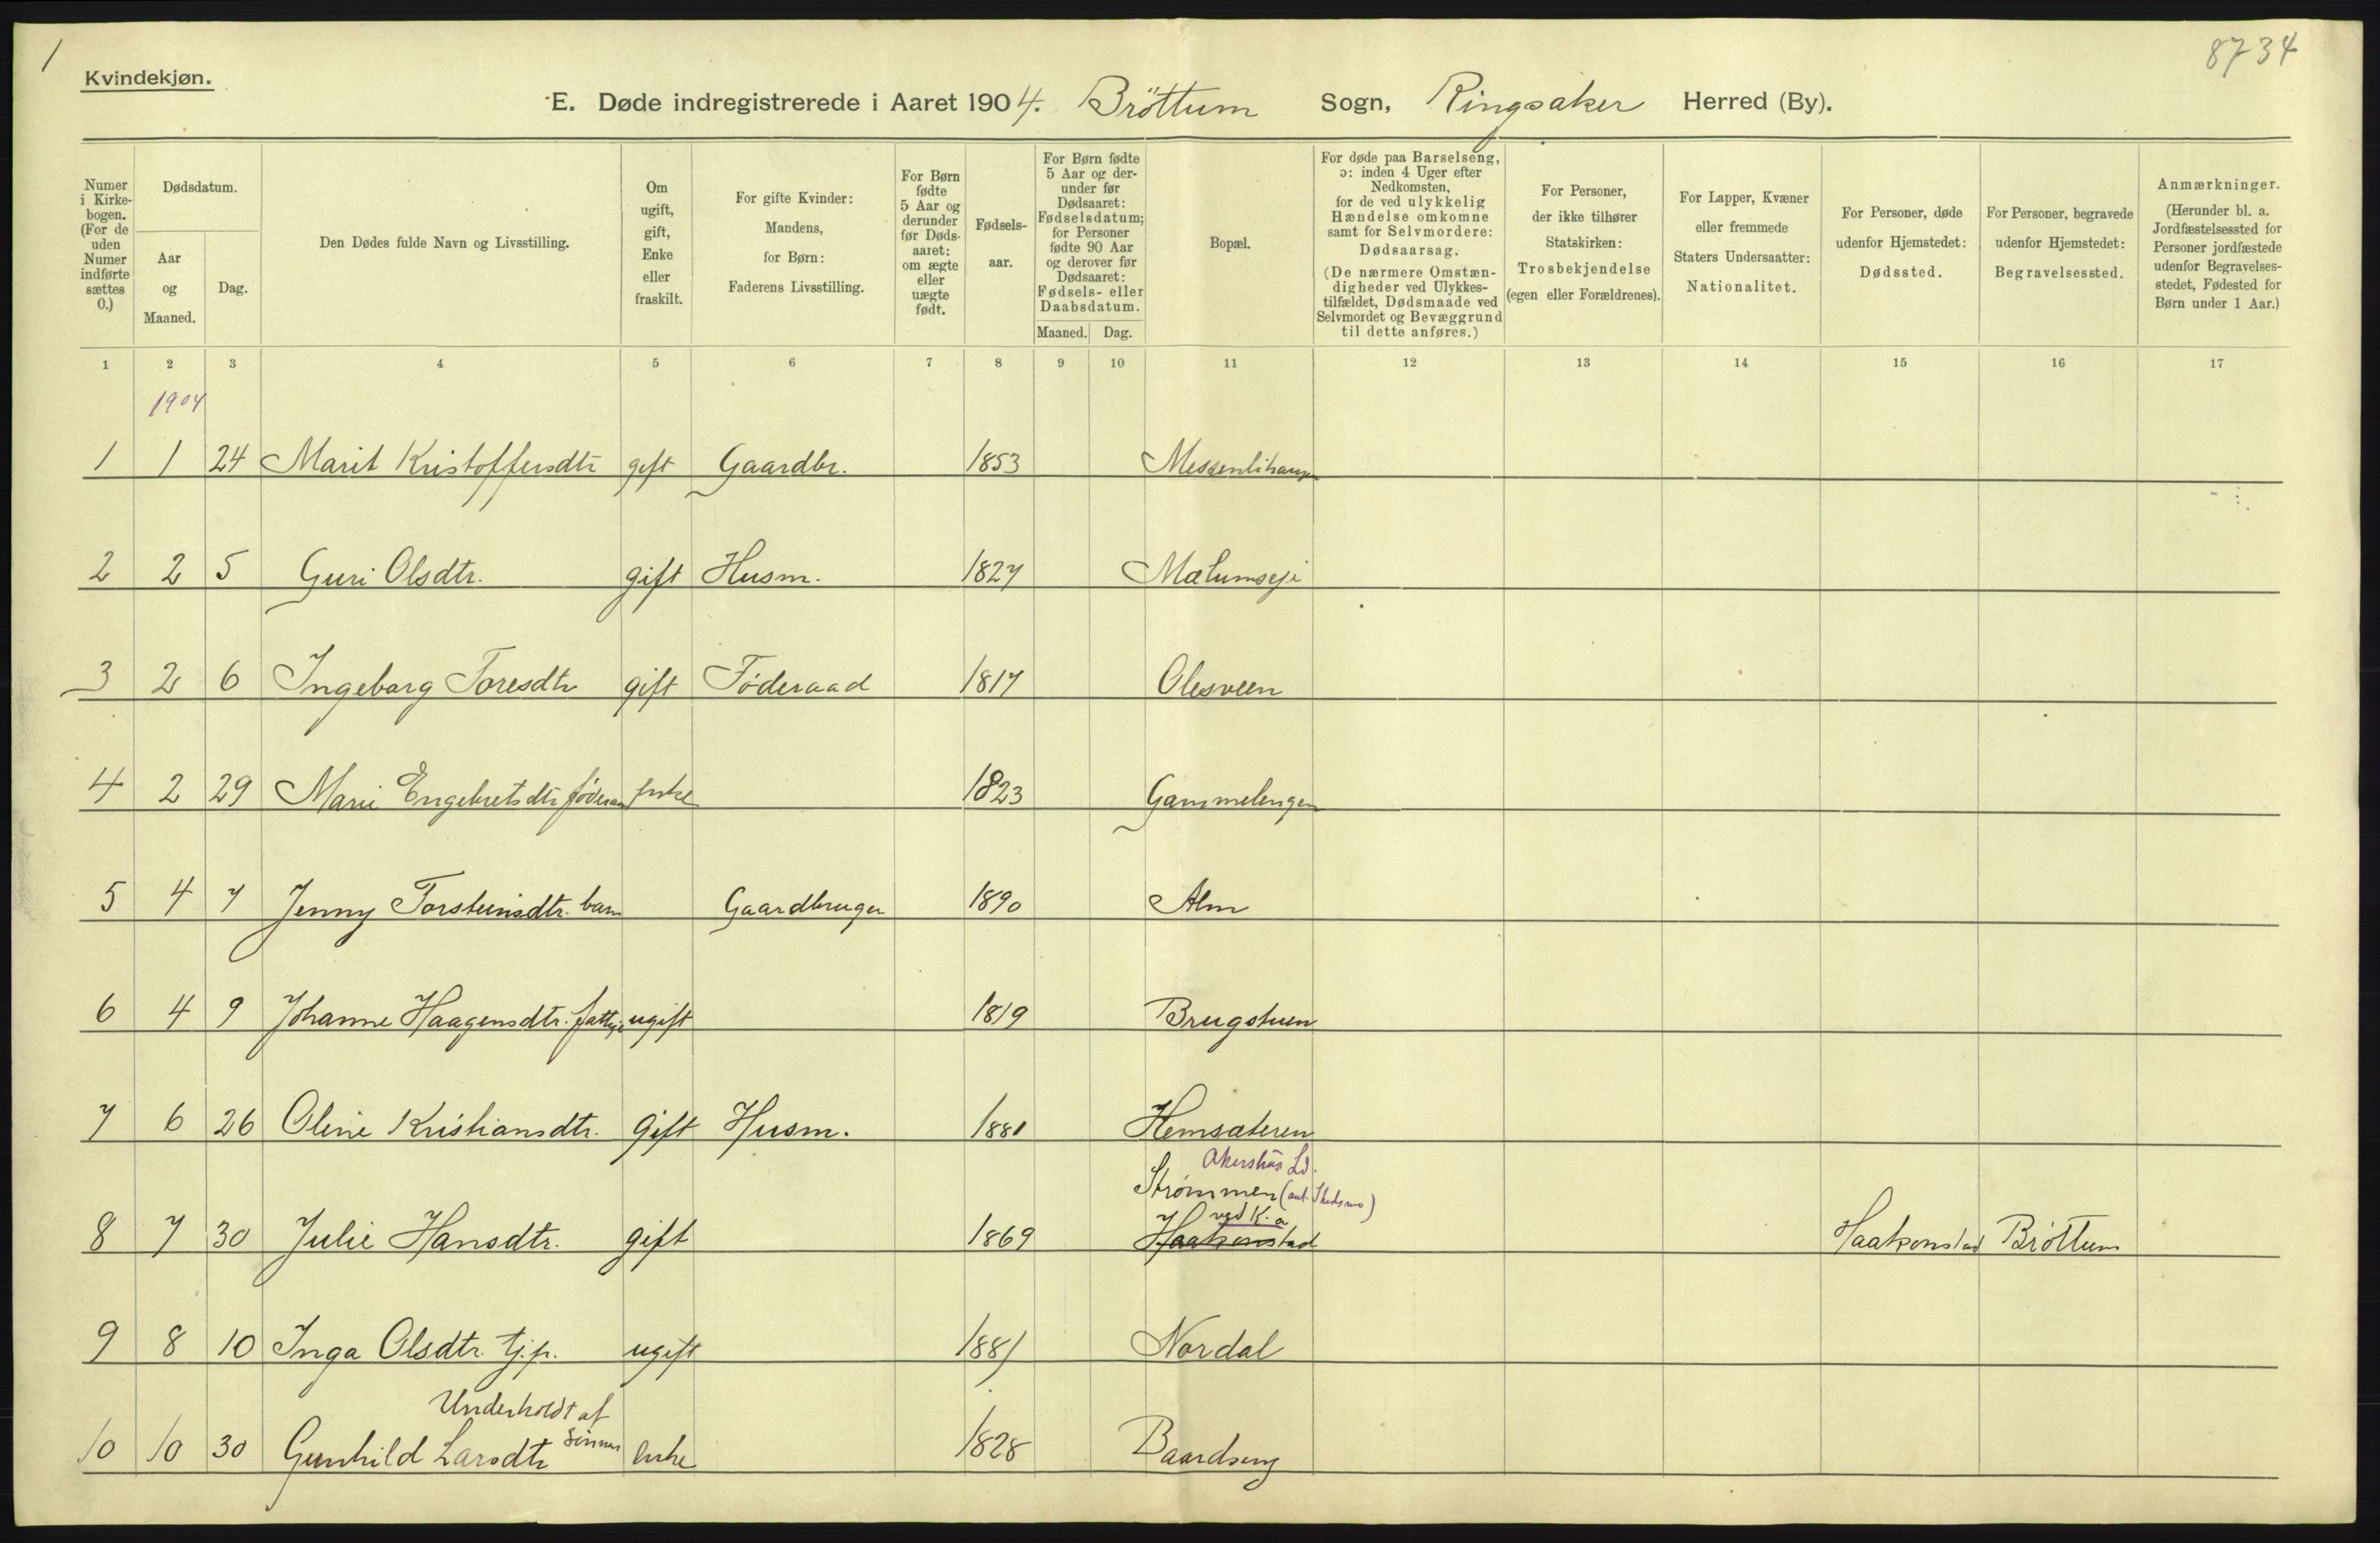 1
8734
Kvindekjøn.
E. Døde indregistrerede i Aaret 1904. Bröttum Sogn, Ringsaker Herred (By).
Numer i Kirke-bogen. (For de uden Numer indførte sættes 0.)
Dødsdatum.
Aar og Maaned.
Dag.
Den Dødes fulde Navn og Livsstilling.
Om ugift, gift, Enke eller fraskilt.
For gifte Kvinder: Mandens, for Børn: Faderens Livsstilling.
For Børn fødte 5 Aar og derunder før Døds-aaret: om ægte eller uægte født.
Fødsels-aar.
For Børn fødte 5 Aar og der-under før Dødsaaret: Fødselsdatum; for Personer fødte 90 Aar og derover før Dødsaaret: Fødsels- eller Daabsdatum.
Maaned. Dag.
Bopæl.
For døde paa Barselseng, ɔ: inden 4 Uger efter Nedkomsten, for de ved ulykkelig Hændelse omkomne samt for Selvmordere: Dødsaarsag. (De nærmere Omstæn-digheder ved Ulykkes-tilfældet, Dødsmaade ved Selvmordet og Bevæggrund til dette anføres.)
For Personer, der ikke tilhører Statskirken: Trosbekjendelse (egen eller Forældrenes).
For Lapper, Kvæner eller fremmede Staters Undersaatter: Nationalitet.
For Personer, døde udenfor Hjemstedet: Dødssted.
For Personer, begravede udenfor Hjemstedet: Begravelsessted.
Anmærkninger. (Herunder bl. a. Jordfæstelsessted for Personer jordfæstede udenfor Begravelses-stedet, Fødested for Børn under 1 Aar.)
1 2 3 4 5 6 7 8 9 10 11 12 13 14 15 16 17
1904
1 1 24 Marit Kristoffersdtr gift Gaardbr. 1853 Messenlihaugen
2 2 5 Guri Olsdtr. gift Husm. 1827 Mælumseje
3 2 6 Ingeborg Toresdtr gift Föderaad 1817 Olesveen
4 2 29 Marie Engebretsdtr föderaad Enke 1823 Gammelengen
5 4 7 Jenny Torsteinsdtr. barn Gaardbruger 1890 Alm
6 4 9 Johanne Haagensdtr. fattig ugift 1819 Brugstuen
7 6 26 Oline Kristiansdtr. Gift Husm. 1881 Hemsæteren
Akershus
Strømmen (ant. Skedsmo)
ved K.a
8 7 30 Julie Hansdtr. gift 1869 Haakonstad Haakonstad Bröttum
9 8 10 Inga Olsdtr. tj.p. ugift 1881 Nordal
Underholdt af
10 10 30 Gunhild Larsdtr Sönnen Enke 1828 Baardseng